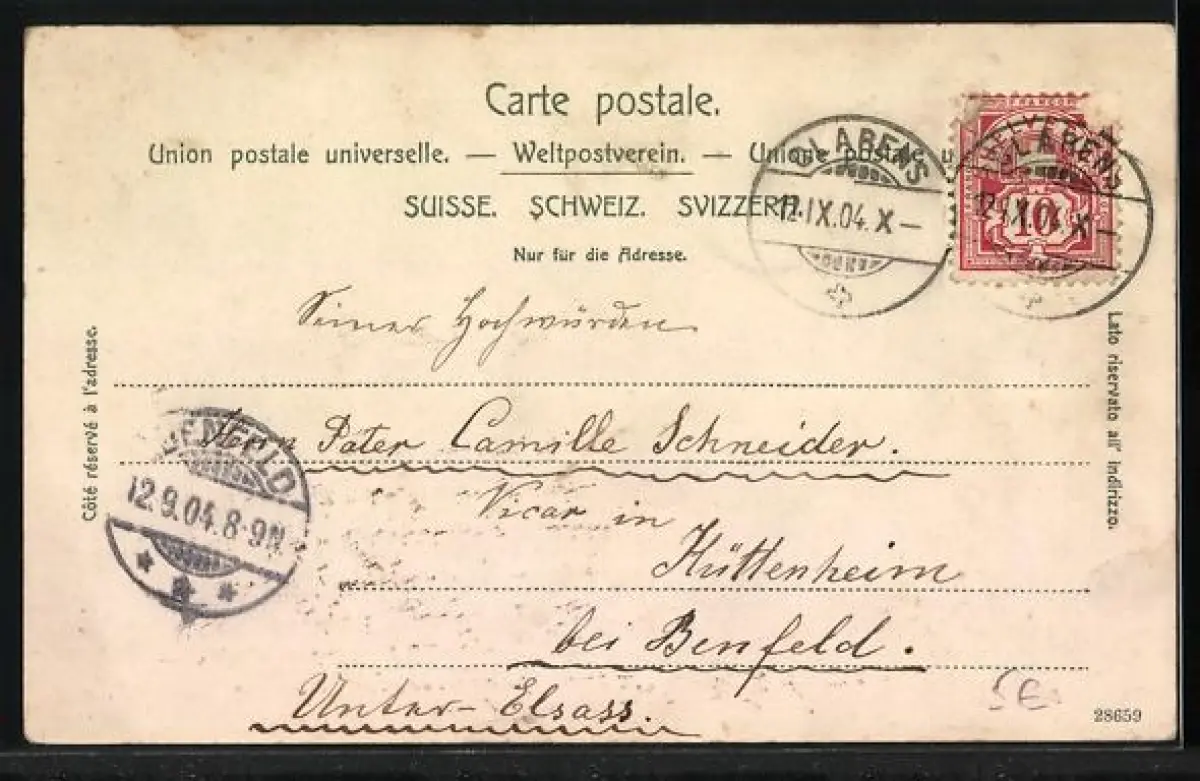 Carte postale.
Union postale universelle. — Weltpostverein. — Unione postale u
SUISSE. SCHWEIZ. SVIZZERA.
Nur für die Adresse.
GLABENS
12.IX.04.X—
GLABENS
12.IX.04.X—
FRANCO
HELVETIA
10
Seiner Hochwürden
Herrn Pater Camille Schneider.
Vicar in
Hüttenheim
bei Benfeld.
Unter-Elsass.
BENFELD
12.9.04.8-9N.
Côté réservé à l'adresse.
Lato riservato all' indirizzo.
5€
28659